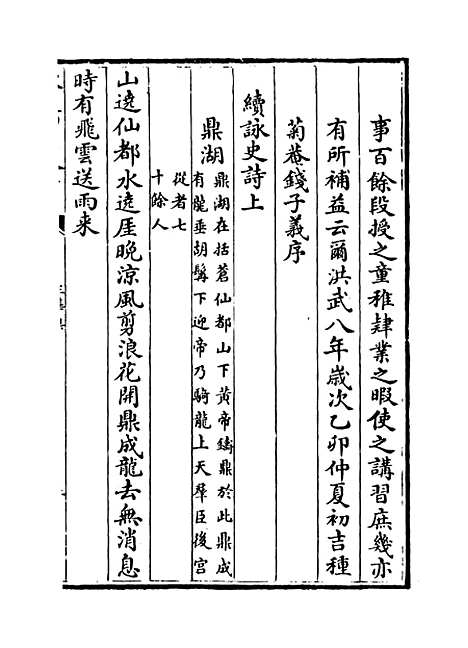 事百餘段授之童稚肄業之暇使之講習庶幾亦
有所補益云爾洪武八年歲次乙卯仲夏初吉種
菊菴錢子義序
續詠史詩上
鼎湖
鼎湖在括蒼仙都山下黃帝鑄鼎於此鼎成
有龍垂胡髯下迎帝乃騎龍上天羣臣後宮
從者七
十餘人
山遶仙都水遶厓晚涼風剪浪花開鼎成龍去無消息
時有飛雲送雨来